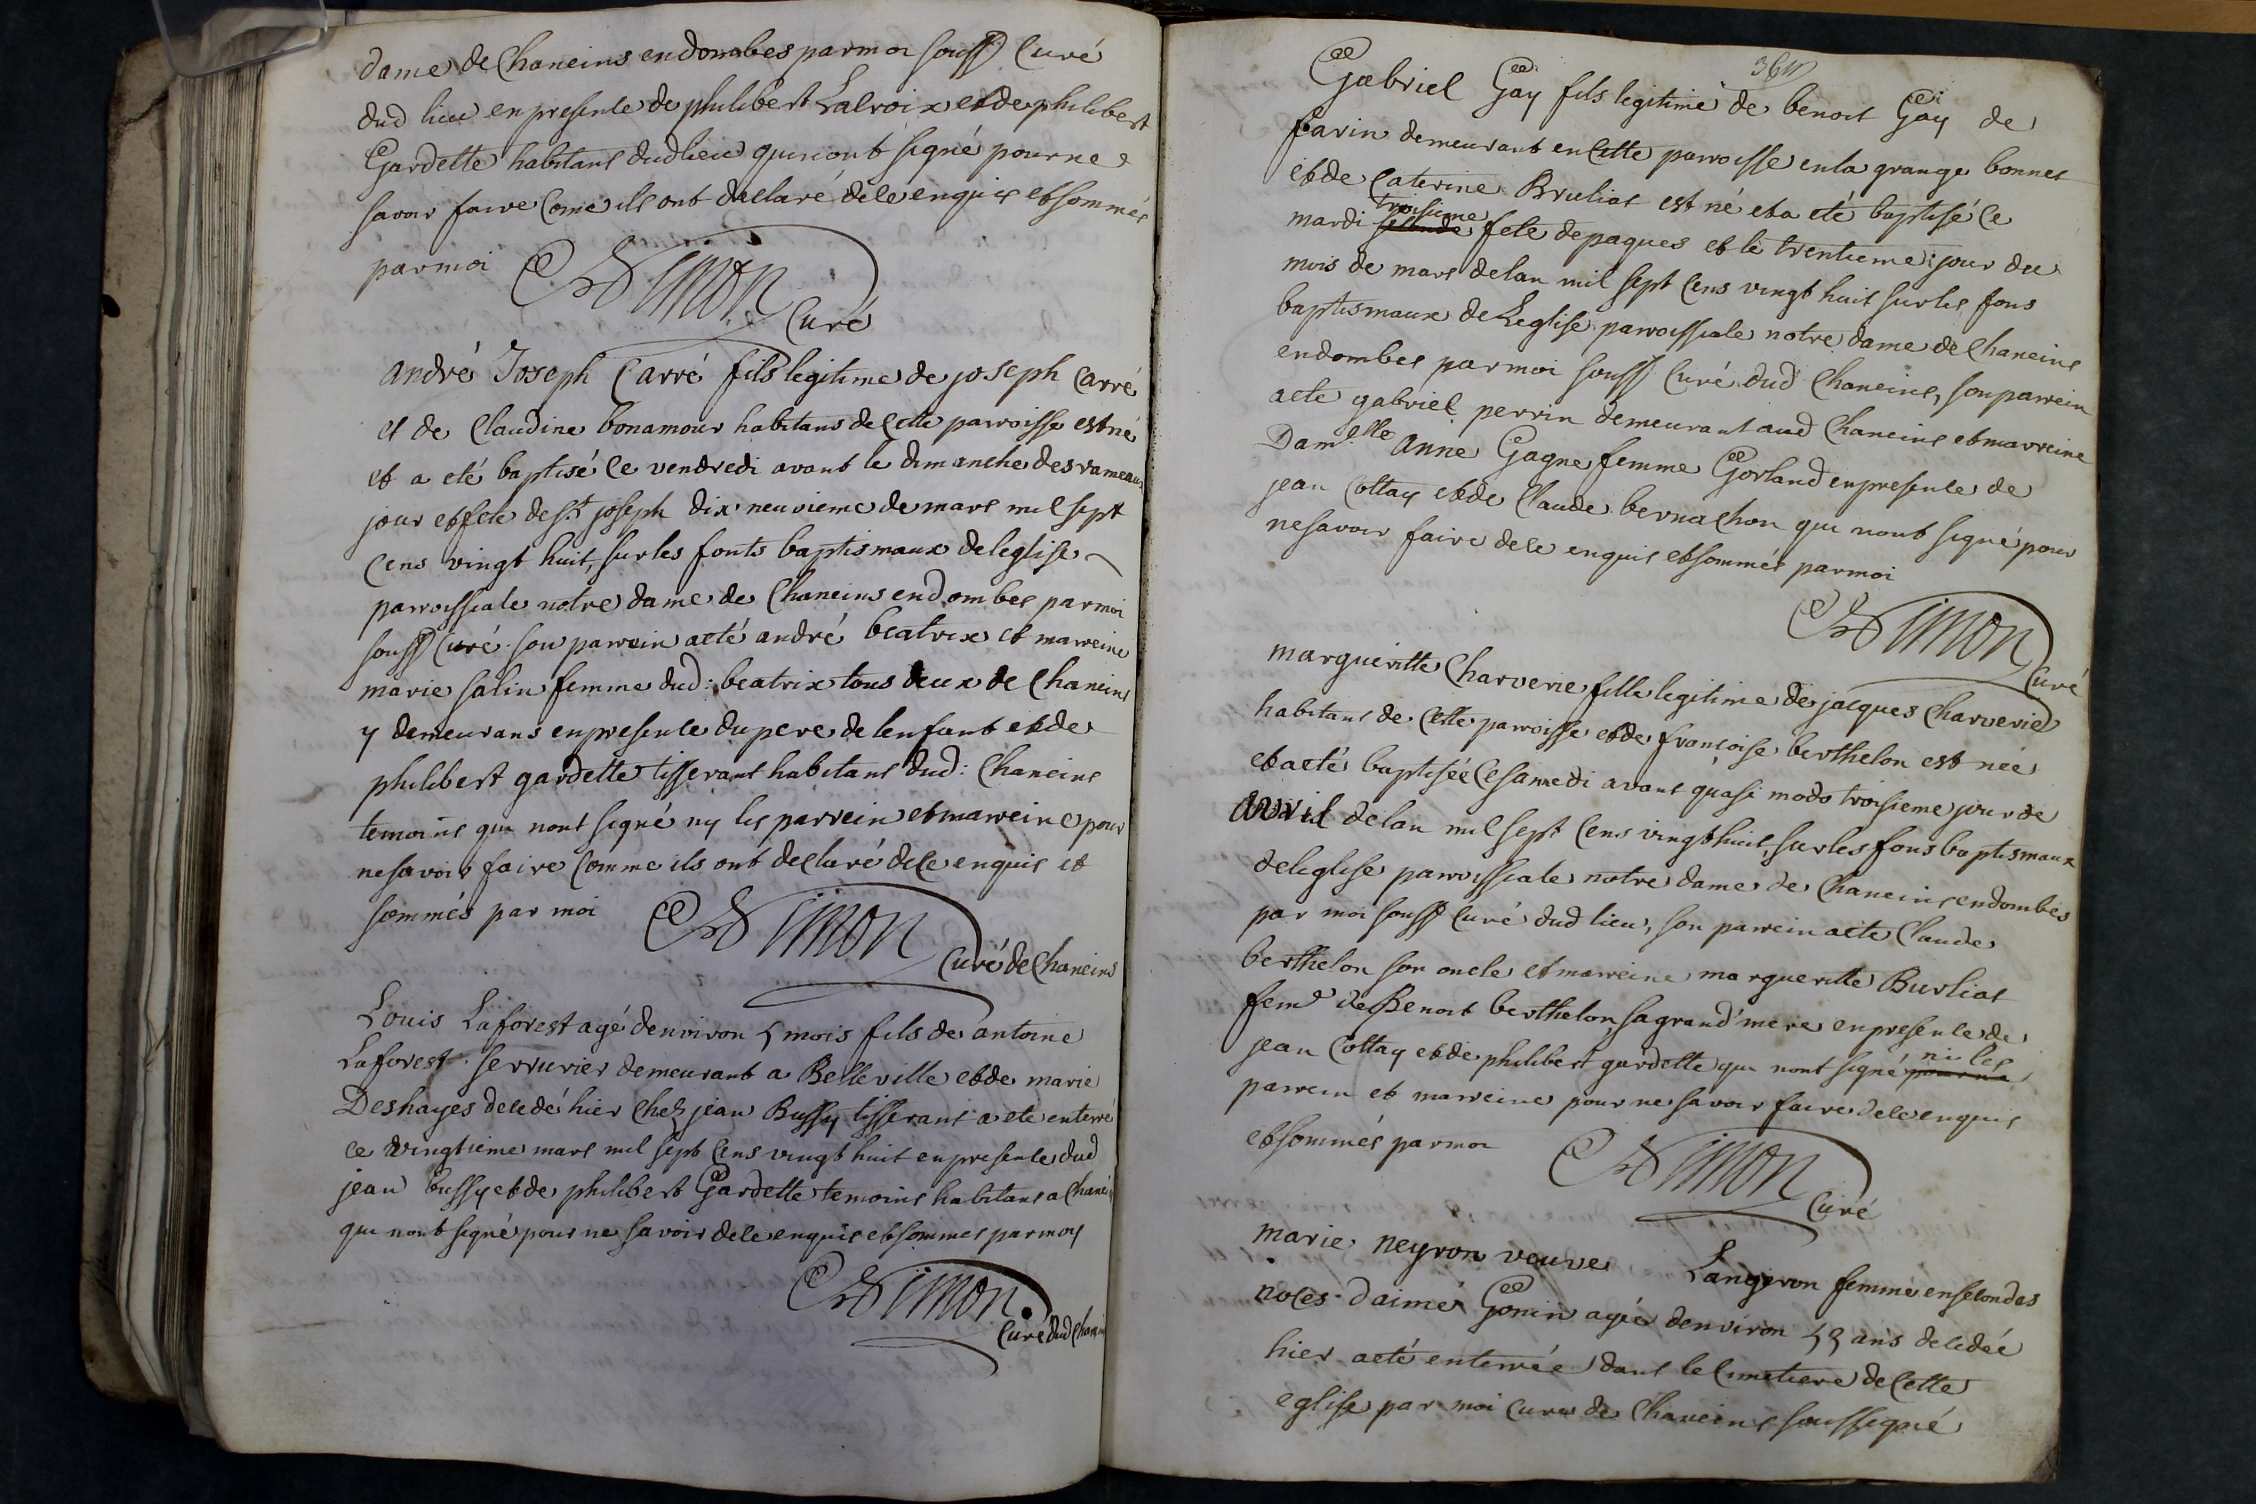 dame de Chaneins en dombes par moi souss Curé
dud lieu en presence de philibert Lacroix et de philibert
Gardette habitans dud lieu qui nont signé pour ne
savoir faire Come ils ont declaré de ce enquis et sommés
par moi Simon
Curé
andré Joseph Carré fils legitime de joseph Carré
et de Claudine bonamour habitans de cette parroisse est né
et a eté baptisé ce vendredi avant le dimanche des rameaux
jour et fete de st joseph dix neuvieme de mars mil sept
Cens vingt huit, sur les fonts baptismaux de leglise
parroissiale notre dame de Chaneins en dombes par moi
souss Curé son parrein a eté andré beatrix et marreine
marie salin femme dud: beatrix tous deux de Chaneins
y demeurans en presence du pere de lenfant et de
philibert gardette tisserant habitans dud: Chaneins
temoins qui nont signé ny les parrein et marreine pour
ne savoir faire Comme ils ont declaré de ce enquis et
sommés par moi Simon
Curé de Chaneins
Louis Laforest agé denviron 5 mois fils de antoine
Laforest serrurier demeurant a Belleville et de marie
Deshayes decedé hier Chez jean Bussy tisserant a eté enterré
ce vingtieme mars mil sept Cens vingt huit en presence dud
jean bussy et de philibert Gardette temoins habitans a Chaneins
qui nont signé pour ne savoir de ce enquis et sommes par moy
Simon
Curé dud Chaneins
Gabriel Gay fils legitime de benoit Gay de
farin demeurant en cette parroisse en la grange bonnet
et de Caterine Bruliat est né et a eté baptisé ce
troisieme
mardi seconde fete de paques et le trentieme jour du
mois de mars de lan mil sept Cens vingt huit sur les fons
baptismaux de Leglise parroissiale notre dame de Chaneins
en dombes par moi souss Curé dud Chaneins, son parrein
a eté gabriel perrin demeurant aud Chaneins et marreine
Dam.elle anne Gagne femme Gorland en presence de
jean Cottay et de Claude bernachon qui nont signé pour
ne savoir faire de ce enquis et sommés par moi
Simon
Curé
margueritte Charverie fille legitime de jacques Charverie
habitans de Cette parroisse et de françoise berthelon est née
et a eté baptisée ce samedi avant quasi modo troisieme jour de
avril de lan mil sept Cens vingt huit, sur les fons baptismaux
de leglise parroissiale notre dame de Chaneins en dombes
par moi souss Curé dud lieu, son parrein a eté Claude
berthelon son oncle et marreine margueritte Burliat
feme de Benoit berthelon sa grand'mere en presence de
ni les
jean Cottay et de philibert gardette qui nont signé pour ne
parrein et marreine pour ne savoir faire de ce enquis
et sommés par moi Simon
Curé
marie neyron veuve Langeron femme en secondes
noces d'aimé Gonin agée denviron 55 ans decedée
hier a eté enterrée dans le Cimetiere de Cette
eglise par moi curé de Chaneins soussigné